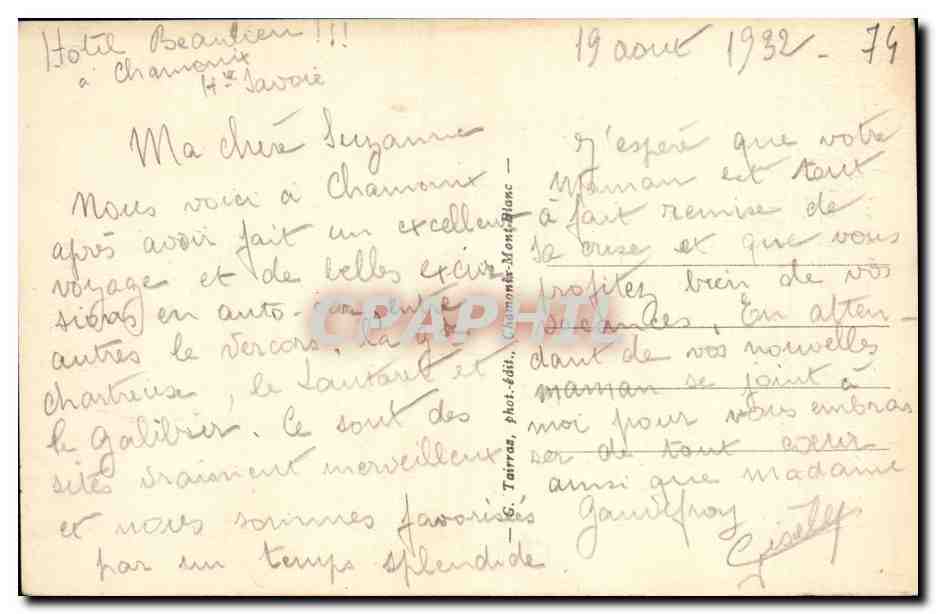 Hotel Beaulieu!!!
à Chamonix
Hte Savoie
19 aout 1932 - 74
Ma chère Suzanne
Nous voici à Chamonix
après avoir fait un excellent
voyage et de belles excur
sions en auto - entre
autres le Vercors, la gde
chartreuse, le Lautaret et
le Galibier. Ce sont des
sites vraiment merveilleux
et nous sommes favorisés
par un temps splendide
J'espère que votre
maman est tout
à fait remise de
sa crise et que vous
profitez bien de vos
vacances. En atten-
dant de vos nouvelles
maman se joint à
moi pour vous embras
ser de tout coeur
ainsi que madame
Gaudefroy
Giselle
— G. Tairraz, phot.-édit., Chamonix-Mont-Blanc —
CPAPHIL